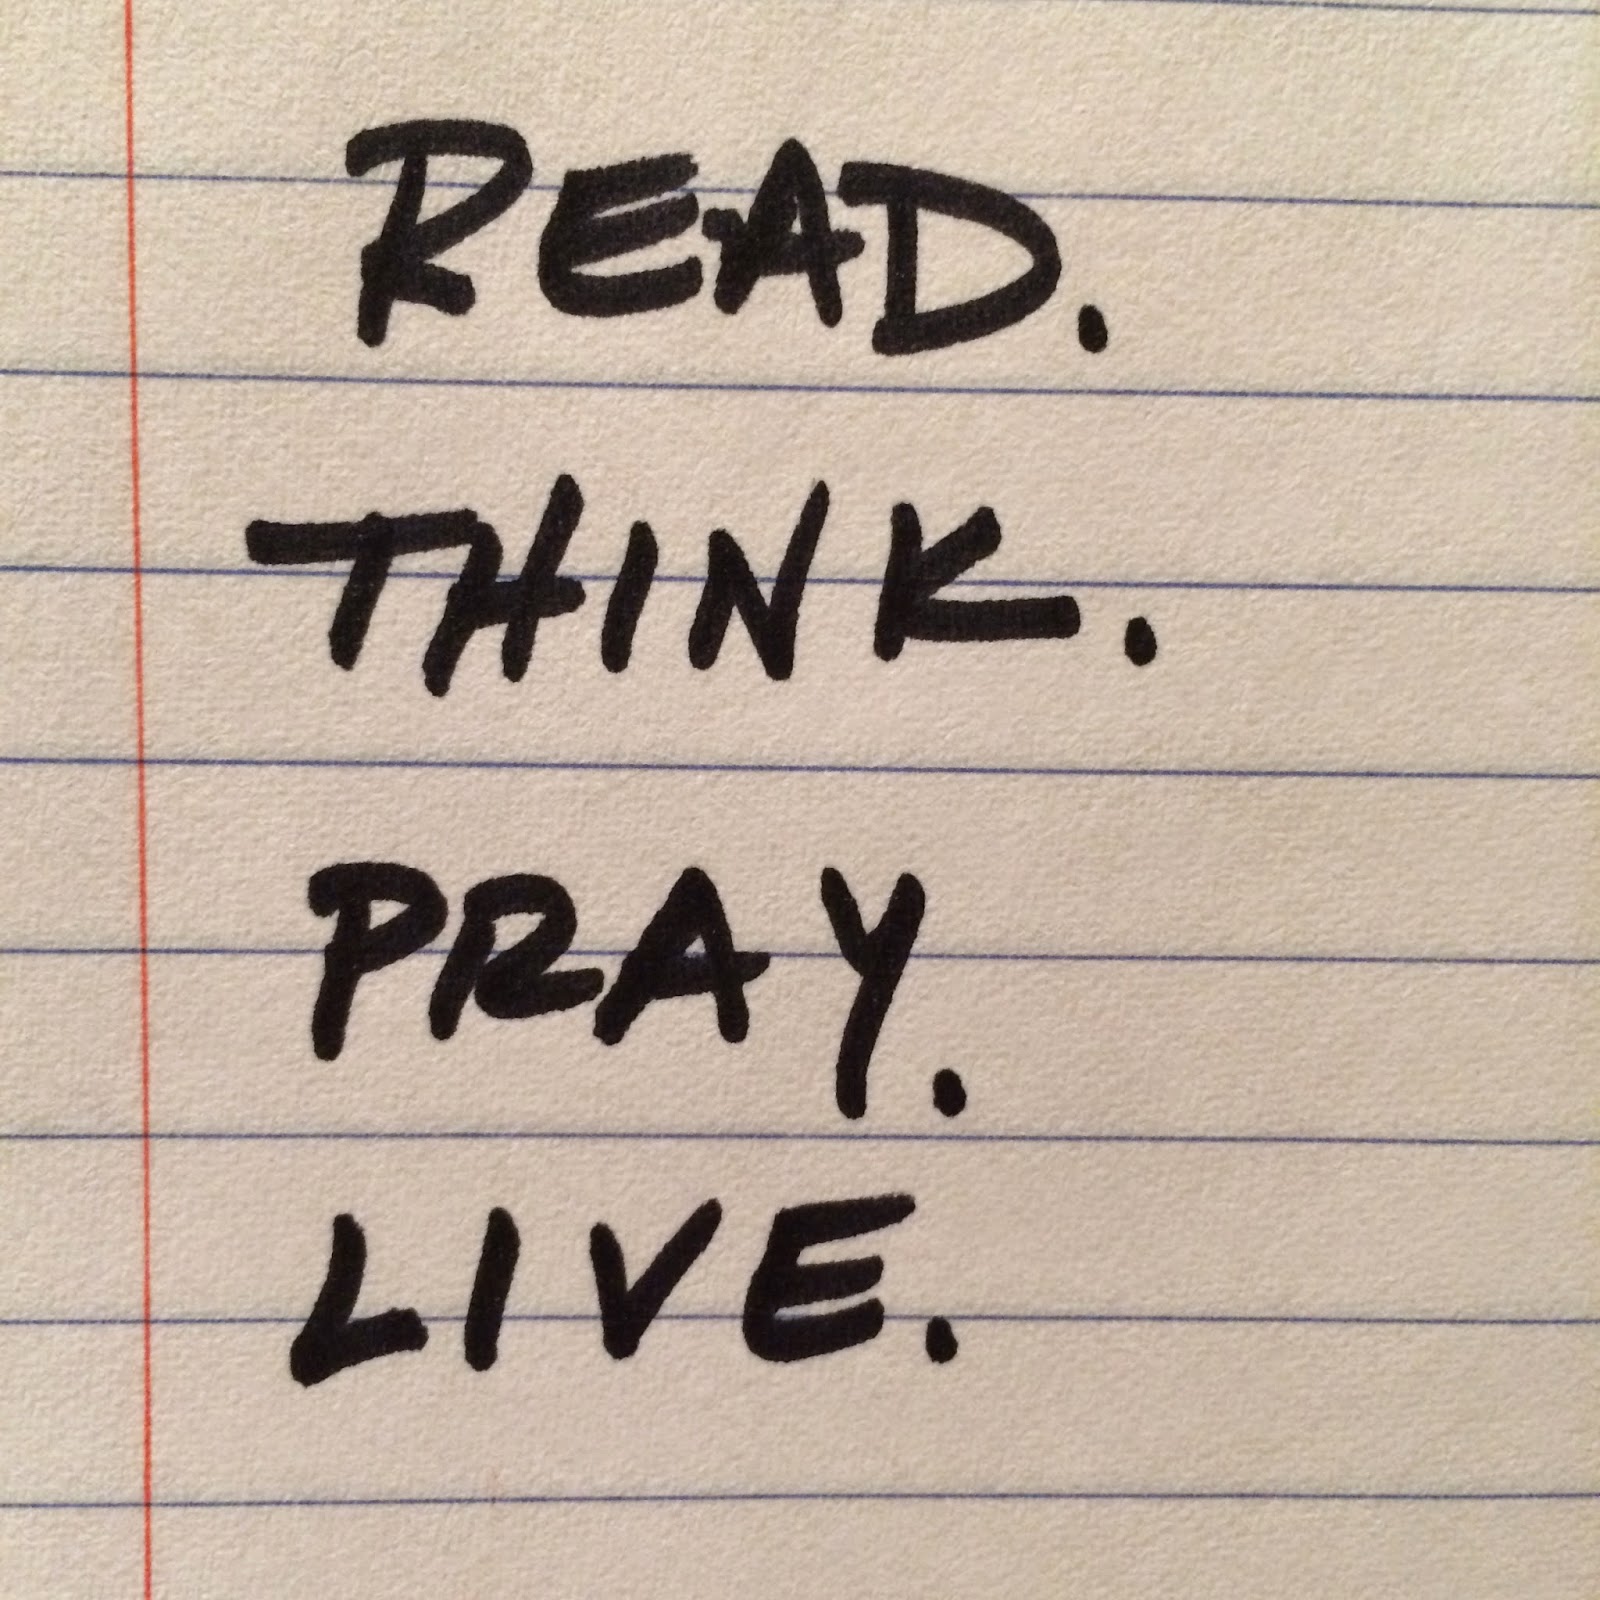 READ.
THINK.
PRAY.
LIVE.